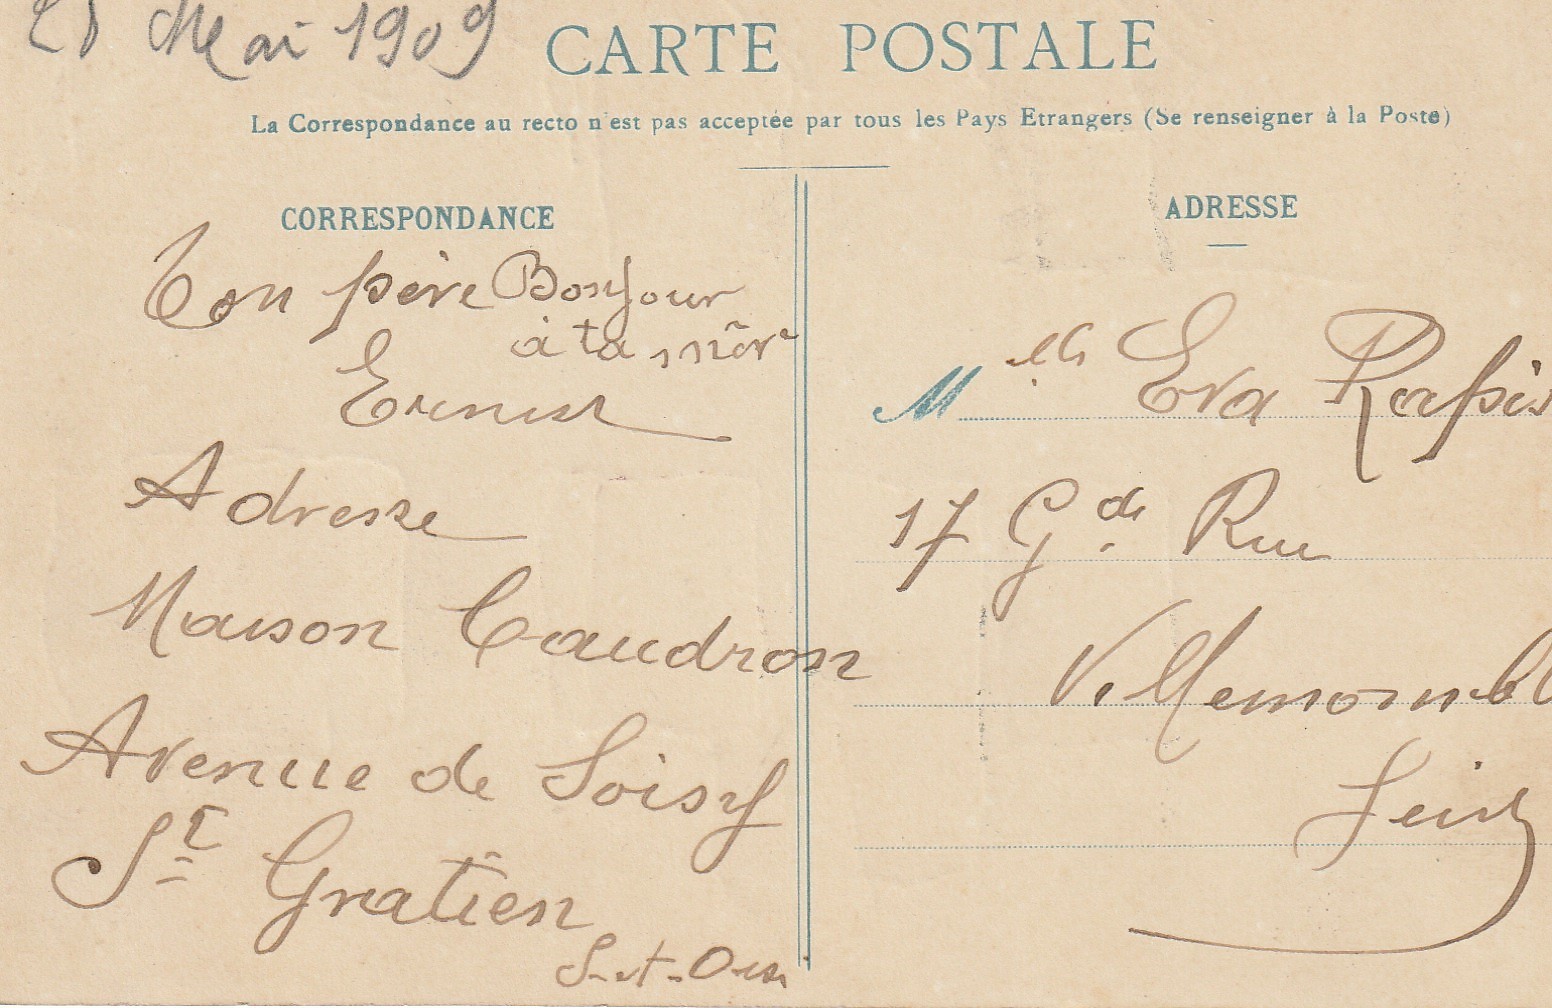 Mai 1909
CARTE POSTALE
La Correspondance au recto n'est pas acceptée par tous les Pays Etrangers (Se renseigner à la Poste)
CORRESPONDANCE
Ton père Bonjour
à ta mère
Ernest
Adresse
Maison Caudron
Avenue de Soisy
St Gratien
S-et-Oise
ADRESSE
Melle Eva
17 Gde Rue
Villemombl
Seine